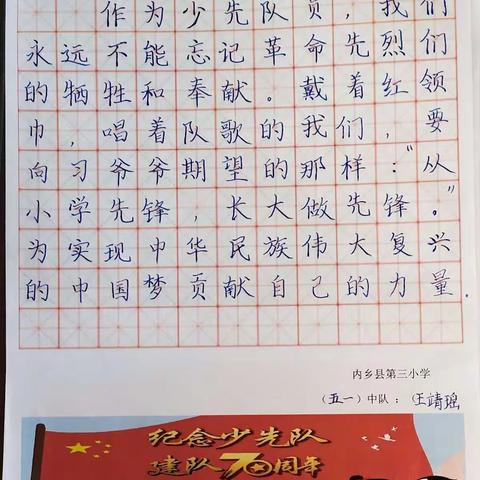 作为少先队员，我们
永远不能忘记革命先烈们
的牺牲和奉献。戴着红领
巾，唱着队歌的我们，要
向习爷爷期望的那样："从
小学先锋，长大做先锋。"
为实现中华民族伟大复兴
的中国梦贡献自己的力量.
内乡县第三小学
（五一）中队：（王靖瑶
纪念少先队
建队70周年